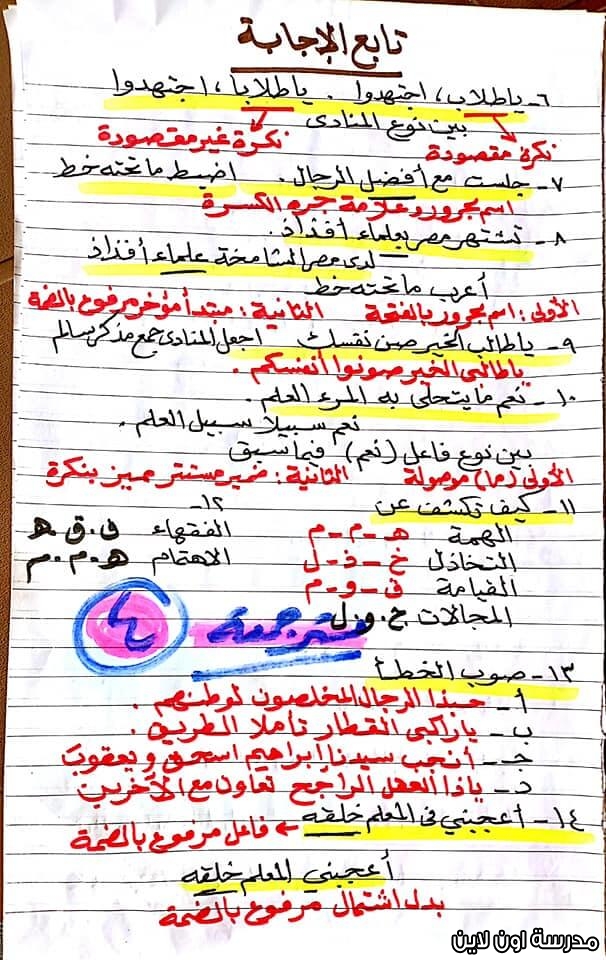 تابع الإجابة
٦- يا طلاب، اجتهدوا . يا طلابا، اجتهدوا
بين نوع المنادى
نكرة مقصودة نكرة غير مقصودة
٧- جلست مع أفضل الرجال. اضبط ما تحته خط
اسم مجرور وعلامة جره الكسرة
٨- تشتهر مصر بعلماء أفذاذ.
لدى مصر الشامخة علماء أفذاذ
أعرب ما تحته خط
الأولى: اسم مجرور بالفتحة الثانية: مبتدأ مؤخر مرفوع بالضمة
٩- يا طالب الخير صن نفسك اجعل المنادى جمع مذكر سالم
يا طالبى الخير صونوا أنفسكم.
١٠- نعم ما يتحلى به المرء العلم.
نعم سبيلا سبيل العلم.
بين نوع فاعل (نعم) فيما سبق
الأولى (ما) موصولة الثانية: ضمير مستتر مميز بنكرة
١١- كيف تكشف عن ١٢-
الهمة هـ - م - م الفقهاء ف.ق.هـ
التخاذل خ - ذ - ل الاهتمام هـ.م.م
القيامة ق - و - م
المجالات ج.و.ل
مستر جمعة ٤
١٣- صوب الخطأ
أ- حبذا الرجال المخلصون لوطنهم.
ب- يا راكبى القطار تأملا الطريق.
جـ- أنجب سيدنا إبراهيم اسحق ويعقوب
د- يا ذا العقل الراجح تعاون مع الآخرين
١٤- أعجبني في المعلم خلقه ← فاعل مرفوع بالضمة
أعجبني المعلم خلقه
بدل اشتمال مرفوع بالضمة
مدرسة اون لاين